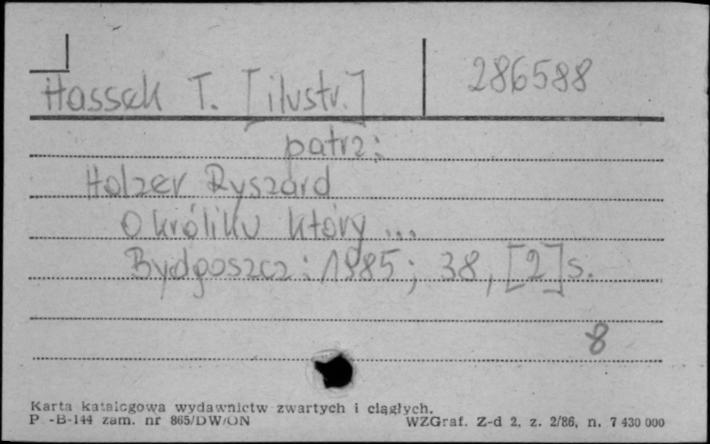 Hassek T. [ilustr.] 286588
patrz:
Holzer Ryszard
O króliku który ...
Bydgoszcz: 1985; 38, [2] s.
8
Karta katalogowa wydawnictw zwartych i ciągłych.
P -B-144 zam. nr 865/DW/ON WZGraf. Z-d 2, z. 2/86, n. 7 430 000